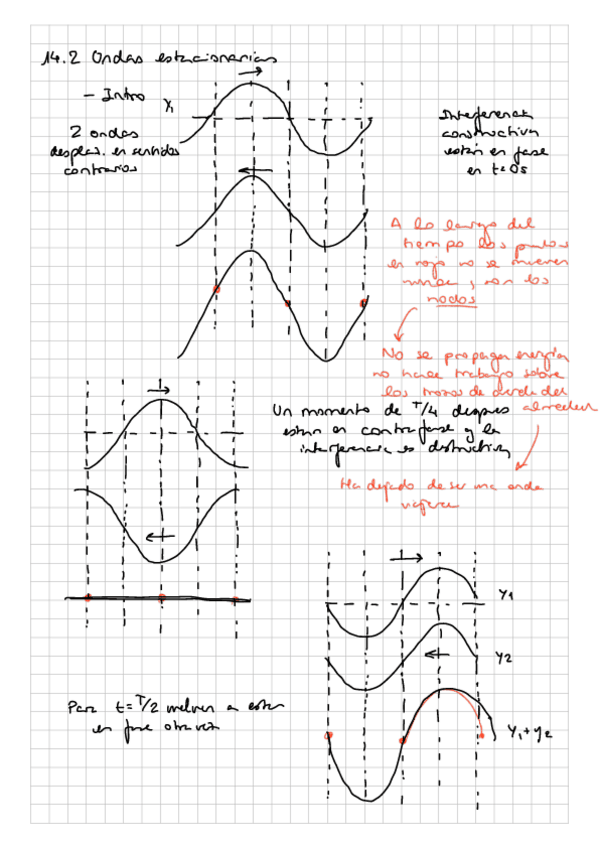 14.2 Ondas estacionarias
- Intro
Y₁
2 ondas
desplaz. en sentidos
contrarios
Interferencia
constructiva
están en fase
en t=0s
A lo largo del
tiempo los puntos
en rojo no se mueven
nunca, son los
nodos
No se propaga energía
no hace trabajo sobre
los trozos de cuerda del
alrededor
Un momento de T/4 despues
estan en contrafase y la
interferencia es destructiva
Ha dejado de ser una onda
viajera
Y1
Y2
Y₁+Y₂
Para t=T/2 vuelven a estar
en fase otra vez